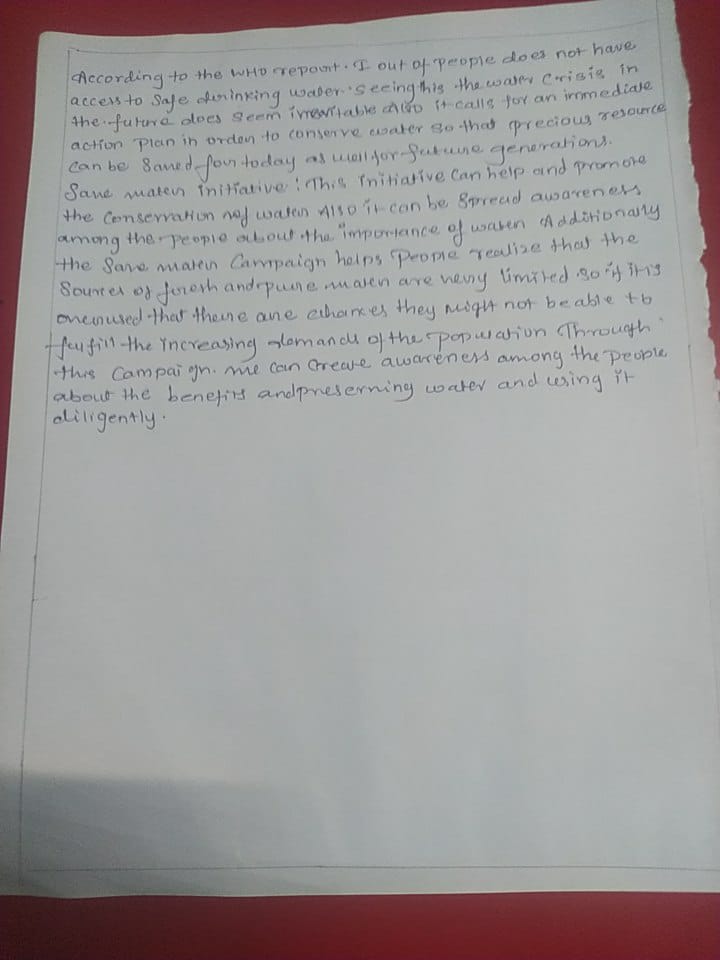 According to the WHO repount. I out of people does not have
access to Safe drinking water. Seeing this the water Crisis in
the future does seem irrevitable Also it calls for an immediate
action plan in orden to conserve water so that precious resource
can be Saned four today as well for future generations.
Sane maten initiative! This initiative Can help and promote
the Conservation of waten Also it can be Spread awareness
among the people about the importance of waten Additionally
the Sane maten Campaign helps People realize that the
Sources of fresh and pure maten are veny limited so if it is
onenused that thene ane chances they might not be able to
fulfill the increasing demands of the population Through
this Campaign. me can Create awareness among the people
about the benefits and preserning water and using it
diligently.